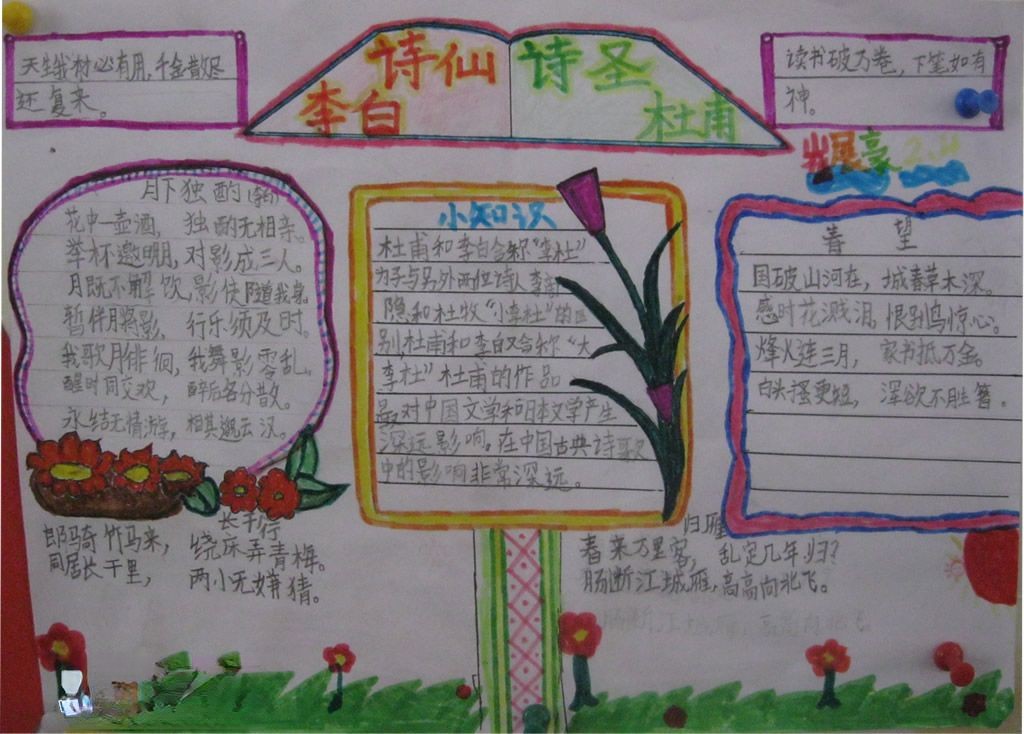 天生我材必有用,千金散尽
还复来。
诗仙
李白
诗圣
杜甫
读书破万卷,下笔如有
神。
展豪 2.4
月下独酌(李白)
花中一壶酒, 独酌无相亲。
举杯邀明月,对影成三人。
月既不解饮,影徒随我身。
暂伴月将影, 行乐须及时。
我歌月徘徊,我舞影零乱。
醒时同交欢, 醉后各分散。
永结无情游, 相其邈云汉。
小知识
杜甫和李白合称“李杜”
为了与另外两位诗人李商
隐和杜牧“小李杜”的区
别,杜甫和李白又合称“大
李杜”杜甫的作品
对中国文学和日本文学产生
深远影响。在中国古典诗歌
中的影响非常深远。
春望
国破山河在, 城春草木深。
感时花溅泪,恨别鸟惊心。
烽火连三月, 家书抵万金。
白头搔更短, 浑欲不胜簪。
长干行
郎马奇竹马来, 绕床弄青梅。
同居长干里, 两小无嫌猜。
归雁
春来万里客, 乱定几年归?
肠断江城雁,高高向北飞。